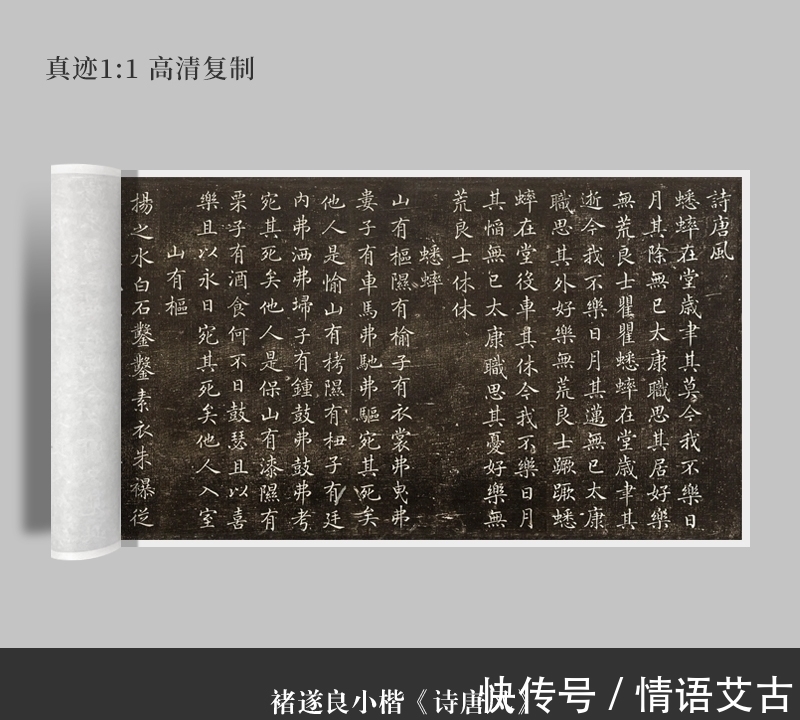 真迹1:1 高清复制
詩唐風
蟋蟀在堂歲聿其莫今我不樂日
月其除無已太康職思其居好樂
無荒良士瞿瞿蟋蟀在堂歲聿其
逝今我不樂日月其邁無已太康
職思其外好樂無荒良士蹶蹶蟋
蟀在堂役車其休今我不樂日月
其慆無已太康職思其憂好樂無
荒良士休休
蟋蟀
山有樞隰有榆子有衣裳弗曳弗
婁子有車馬弗馳弗驅宛其死矣
他人是愉山有栲隰有杻子有廷
內弗洒弗埽子有鍾鼓弗鼓弗考
宛其死矣他人是保山有漆隰有
栗子有酒食何不日鼓瑟且以喜
樂且以永日宛其死矣他人入室
山有樞
揚之水白石鑿鑿素衣朱襮從
褚遂良小楷《诗唐
快传号 / 情语艾古